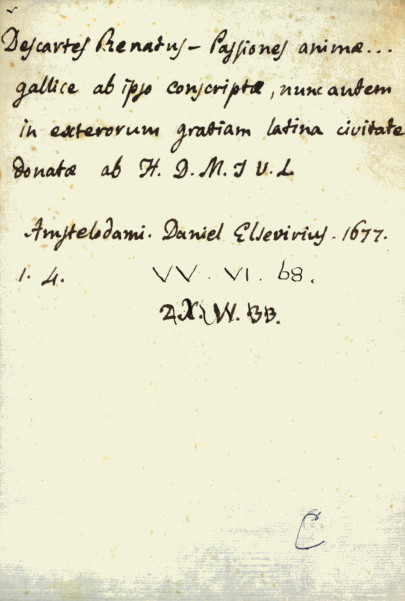 Descartes Renatus – Passiones animæ...
gallice ab ipso conscriptæ, nunc autem
in exterorum gratiam latina civitate
donatæ ab H. D. M. I V. L
Amstelodami. Daniel Elsevirius. 1677.
1. 4. VV. VI. 68.
2X. W. BB.
C